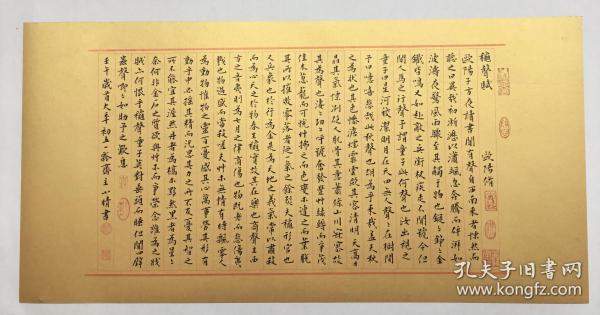 穐聲賦 歐陽脩
歐陽子方夜讀書聞有聲自西南来者悚然而
聽之曰異哉初淅瀝以瀟颯忽奔騰而砰湃如
波濤夜驚風雨驟至其觸于物也鏦鏦錚錚金
鐵皆鳴又如赴敵之兵銜枚疾走不聞號令但
聞人馬之行聲予謂童子此何聲也汝出視之
童子曰星河皎潔明月在天四無人聲聲在樹間
予曰噫嘻悲哉此秋聲也胡為乎来哉盖夫秋
之為狀也其色慘淡煙霏雲斂其容清明天高日
晶其氣慄冽砭人肌骨其意蕭條山川寂寥故
其為聲也淒淒切切呼號奮發豐艸緑縟而爭茂
佳木葱蘢而可悅艸拂之而色變木遭之而葉脫
其所以摧敗零落者乃一氣之餘烈夫穐刑官也
又兵象也於行為金是為天地之義氣常以肅殺
而為心天之於物春生穐實故其在樂也商聲主西
方之音夷則為七月之律商傷也物既老而悲傷夷
戮也物過盛而當殺嗟夫艸木無情有時飄零人
為動物惟物之靈百憂感其心萬事勞其形有
動乎中必搖其精而況思其力之所不及憂其智之
所不能宜其渥然丹者為槁木黟然黑者為星星
奈何非金石之質欲與艸木而爭榮念誰為之戕
賊亦何恨乎穐聲童子莫對垂頭而睡但聞四壁
蟲聲唧唧如助予之歎息
壬午歲首大年初五 齋主小楷書
孔夫子旧书网
www.kongfz.com